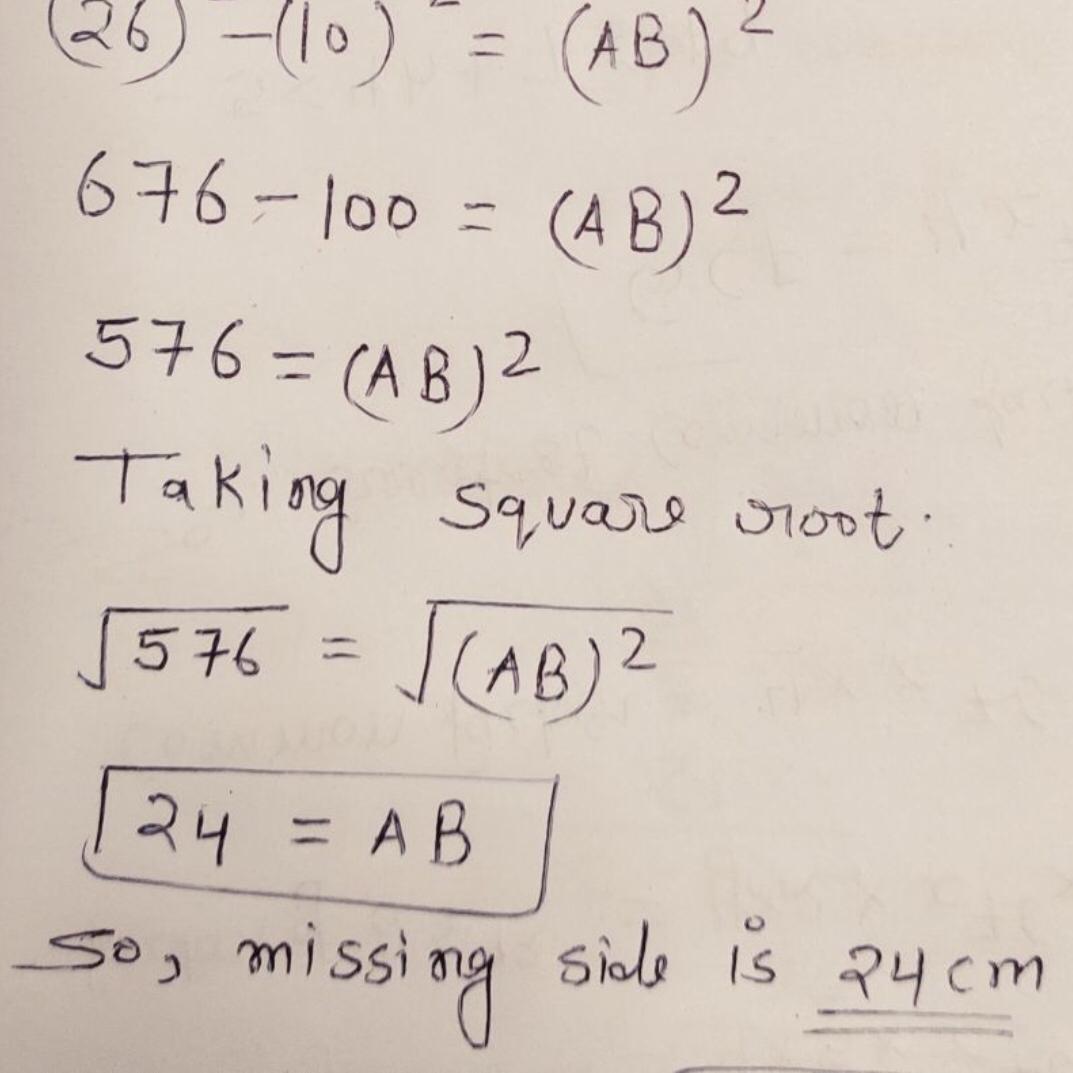 (26)² - (10)² = (AB)²
676 - 100 = (AB)²
576 = (AB)²
Taking square root.
√576 = √(AB)²
24 = AB
So, missing side is 24 cm